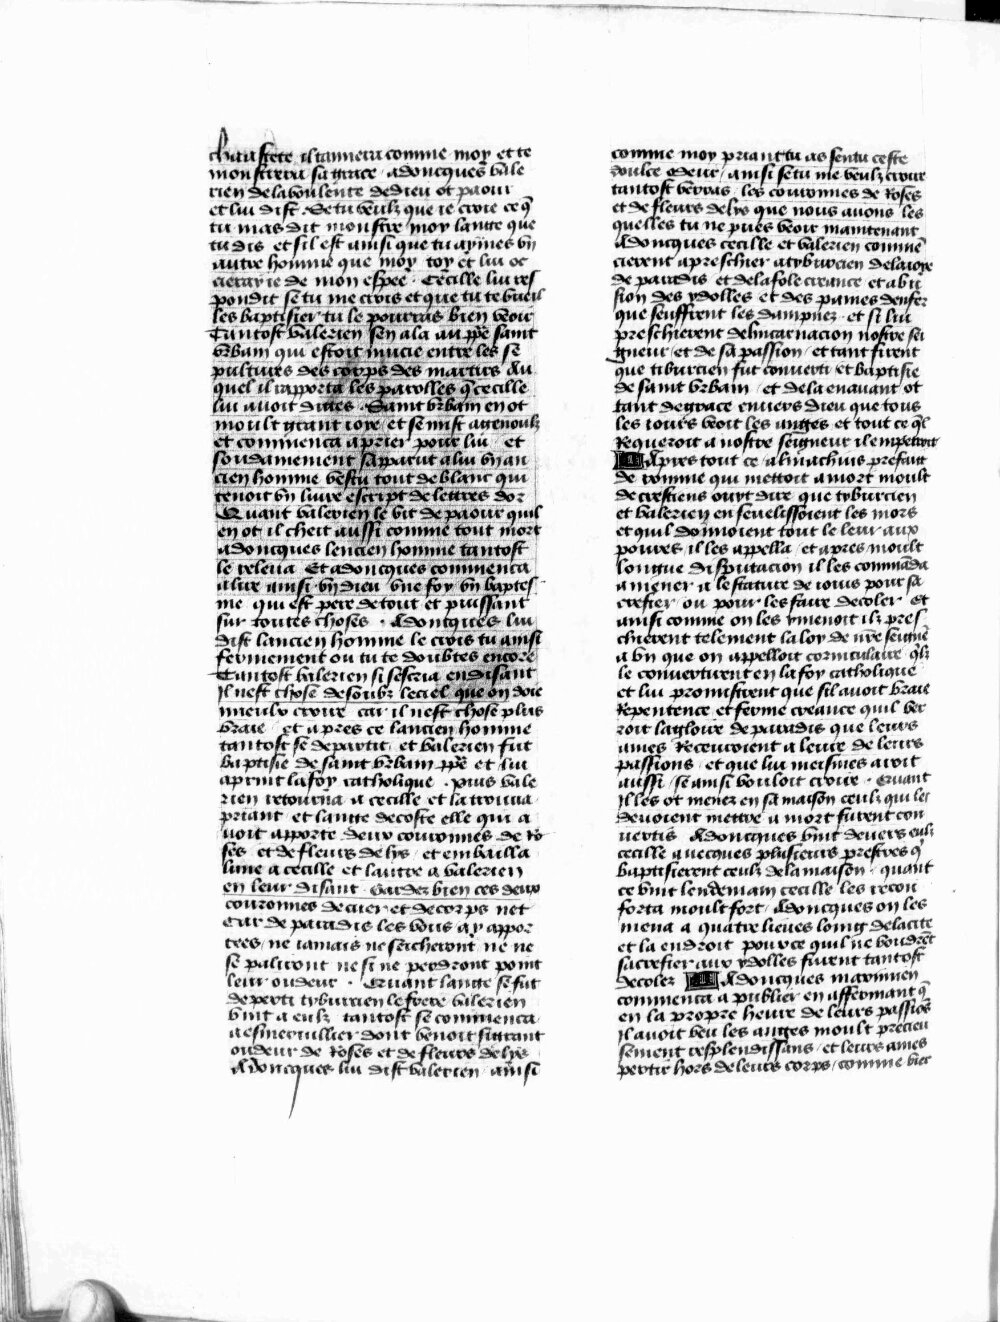 chastete il tamera comme moy et te
monstrera sa grace / adoncques vale
rien de la voulente de dieu ot paour
et lui dist . Se tu veulz que ie croie ce q̄
tu mas dit monstre moy lange que
tu dis et sil est ainsi que tu aymes vn
autre homme que moy toy et lui oc
cieray ie de mon espee . Cecille lui res
pondit se tu me crois et que tu te vueil
les baptisier tu le pourras bien veoir
Tantost valerien sen ala au pp̄e saint
vrbain qui estoit mucie entre les se
pultures des corps des martirs Au
quel il rapporta les parolles q̄ cecille
lui auoit dittes . Saint vrbain en ot
moult grant ioye / et se mist a genoulz
et commenca a prier pour lui / et
soudainement sapparut a lui vn an
cien homme vestu tout de blanc qui
tenoit vn liure escript de lettres dor
Quant valerien le vit de paour quil
en ot il cheit aussi comme tout mort
adoncques lencien homme tantost
le releua Et adoncques commenca
a lire ainsi . vn dieu vne foy vn baptes
me qui est pere de tout et puissant
sur toutes choses . Adoncques lui
dist lancien homme le crois tu ainsi
fermement ou tu te doubtes encore
Tantost valerien si sescria en disant
Il nest chose desoubz le ciel que on doie
mieulx croire car il nest chose plus
vraie / et apres ce lancien homme
tantost se departit / et valerien fut
baptisie de saint vrbain pp̄e et lui
aprint la foy catholique . puis vale
rien retourna a cecille et la trouua
priant / et lange decoste elle qui a
uoit apporte deux couronnes de ro
ses et de fleurs de lys / et en bailla
lune a cecille et lautre a valerien
en leur disant Gardez bien ces deux
couronnes de cuer et de corps net
Car de paradis les vous ay appor
tees / ne iamais ne secheront ne ne
se paliront ne si ne perdront point
leur oudeur . Quant lange se fut
departi tyburcien le frere valerien
vint a eulz tantost se commenca
a esmerueillier dont venoit si grant
oudeur de roses et de fleurs de lys
Adoncques lui dist valerien / ainsi
comme moy priant tu as sentu ceste
doulce odeur / ainsi se tu me veulz croire
tantost verras les couronnes de roses
et de fleurs de lys que nous auons les
quelles tu ne pues veoir maintenant
Adoncques cecille et valerien commē
cierent a preschier a tyburcien de la ioye
de paradis et de la fole creance et abu
sion des ydolles et des paines denfer
que seuffrent les dampnez / et si lui
preschierent de lincarnacion nostre sei
gneur / et de sa passion / et tant firent
que tiburcien fut conuerti et baptisie
de saint vrbain / et de la en auant ot
tant de grace enuers dieu que tous
les iours veoit les anges et tout ce q̄l
requeroit a nostre seigneur il empetroit
Apres tout ce / almachius prefaut
de romme qui mettoit a mort moult
de crestiens ouyt dire que tyburcien
et valerien enseuelissoient les mors
et quil donnoient tout le leur aux
poures / il les appella / et apres moult
longue disputacion il les commāda
a mener a lestature de iouis pour sa
crefier ou pour les faire decoler Et
ainsi comme on les y menoit ilz pres
chierent telement la loy de nr̄e seignr̄
a vn que on appelloit corniculaire q̄lz
le conuertirent en la foy catholique
et lui promistrent que sil auoit vraie
repentence et ferme creance quil ver
roit la gloire de paradis que leurs
ames receuroient a leure de leurs
passions / et que lui meismes auroit
aussi / se ainsi vouloit croire . Quant
il les ot menez en sa maison ceulz qui les
deuoient mettre a mort furent con
uertis Adoncques vint deuers eulz
cecille auecques plusieurs prestres q̄
baptisierent ceulz de la maison . quant
ce vint lendemain cecille les recon
forta moult fort / Adoncques on les
mena a quatre lieues loing de la cite
et la endroit pour ce quil ne voudrēt
sacrefier aux ydolles furent tantost
decolez Adoncques maximien
commenca a publier en affermant q̄
en la propre heure de leurs passiōs
il auoit veu les anges moult precieu
sement resplendissans / et leurs ames
partir hors de leurs corps / comme vier